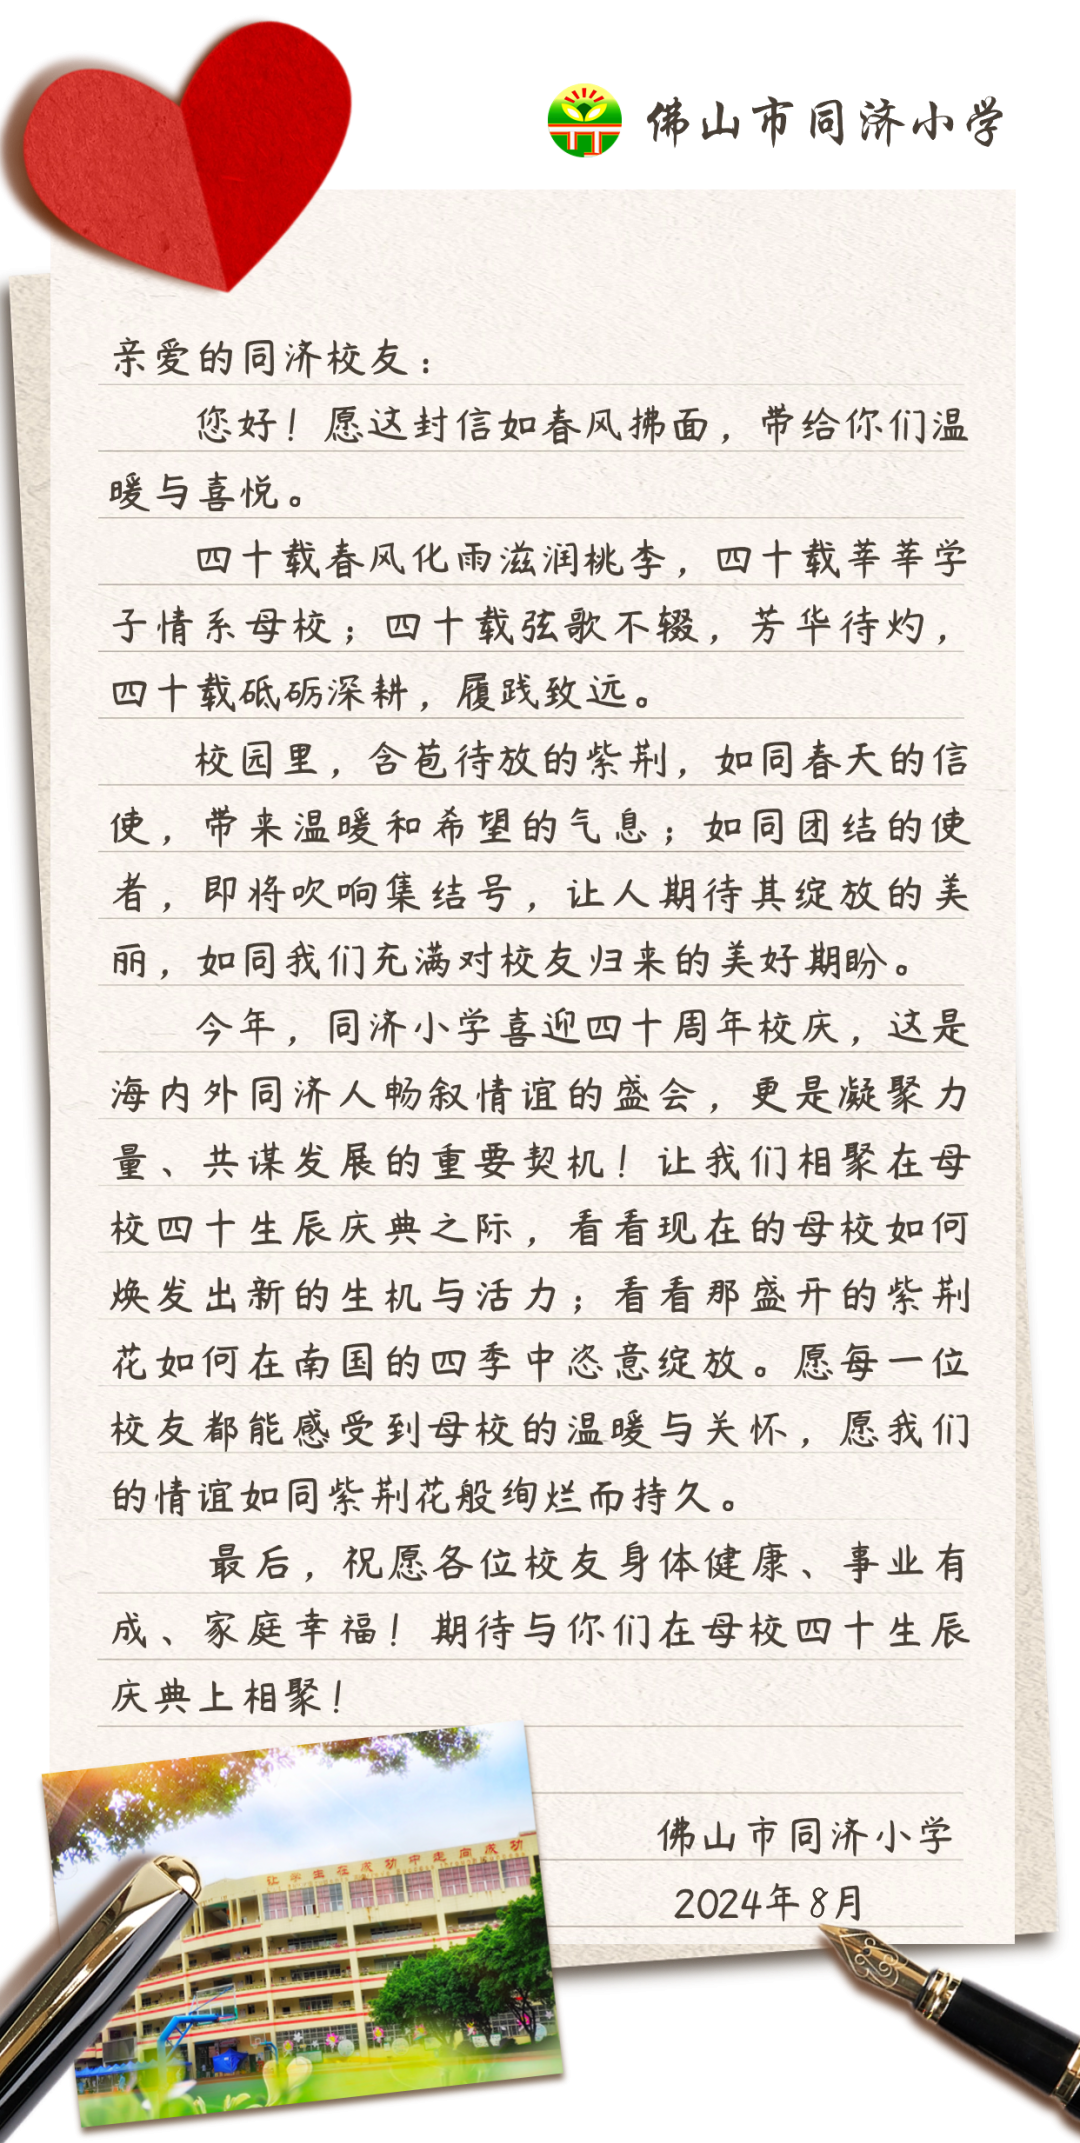 佛山市同济小学
亲爱的同济校友：
您好！愿这封信如春风拂面，带给你们温
暖与喜悦。
四十载春风化雨滋润桃李，四十载莘莘学
子情系母校；四十载弦歌不辍，芳华待灼，
四十载砥砺深耕，履践致远。
校园里，含苞待放的紫荆，如同春天的信
使，带来温暖和希望的气息；如同团结的使
者，即将吹响集结号，让人期待其绽放的美
丽，如同我们充满对校友归来的美好期盼。
今年，同济小学喜迎四十周年校庆，这是
海内外同济人畅叙情谊的盛会，更是凝聚力
量、共谋发展的重要契机！让我们相聚在母
校四十生辰庆典之际，看看现在的母校如何
焕发出新的生机与活力；看看那盛开的紫荆
花如何在南国的四季中恣意绽放。愿每一位
校友都能感受到母校的温暖与关怀，愿我们
的情谊如同紫荆花般绚烂而持久。
最后，祝愿各位校友身体健康、事业有
成、家庭幸福！期待与你们在母校四十生辰
庆典上相聚！
佛山市同济小学
2024年8月
让学生在成功中走向成功